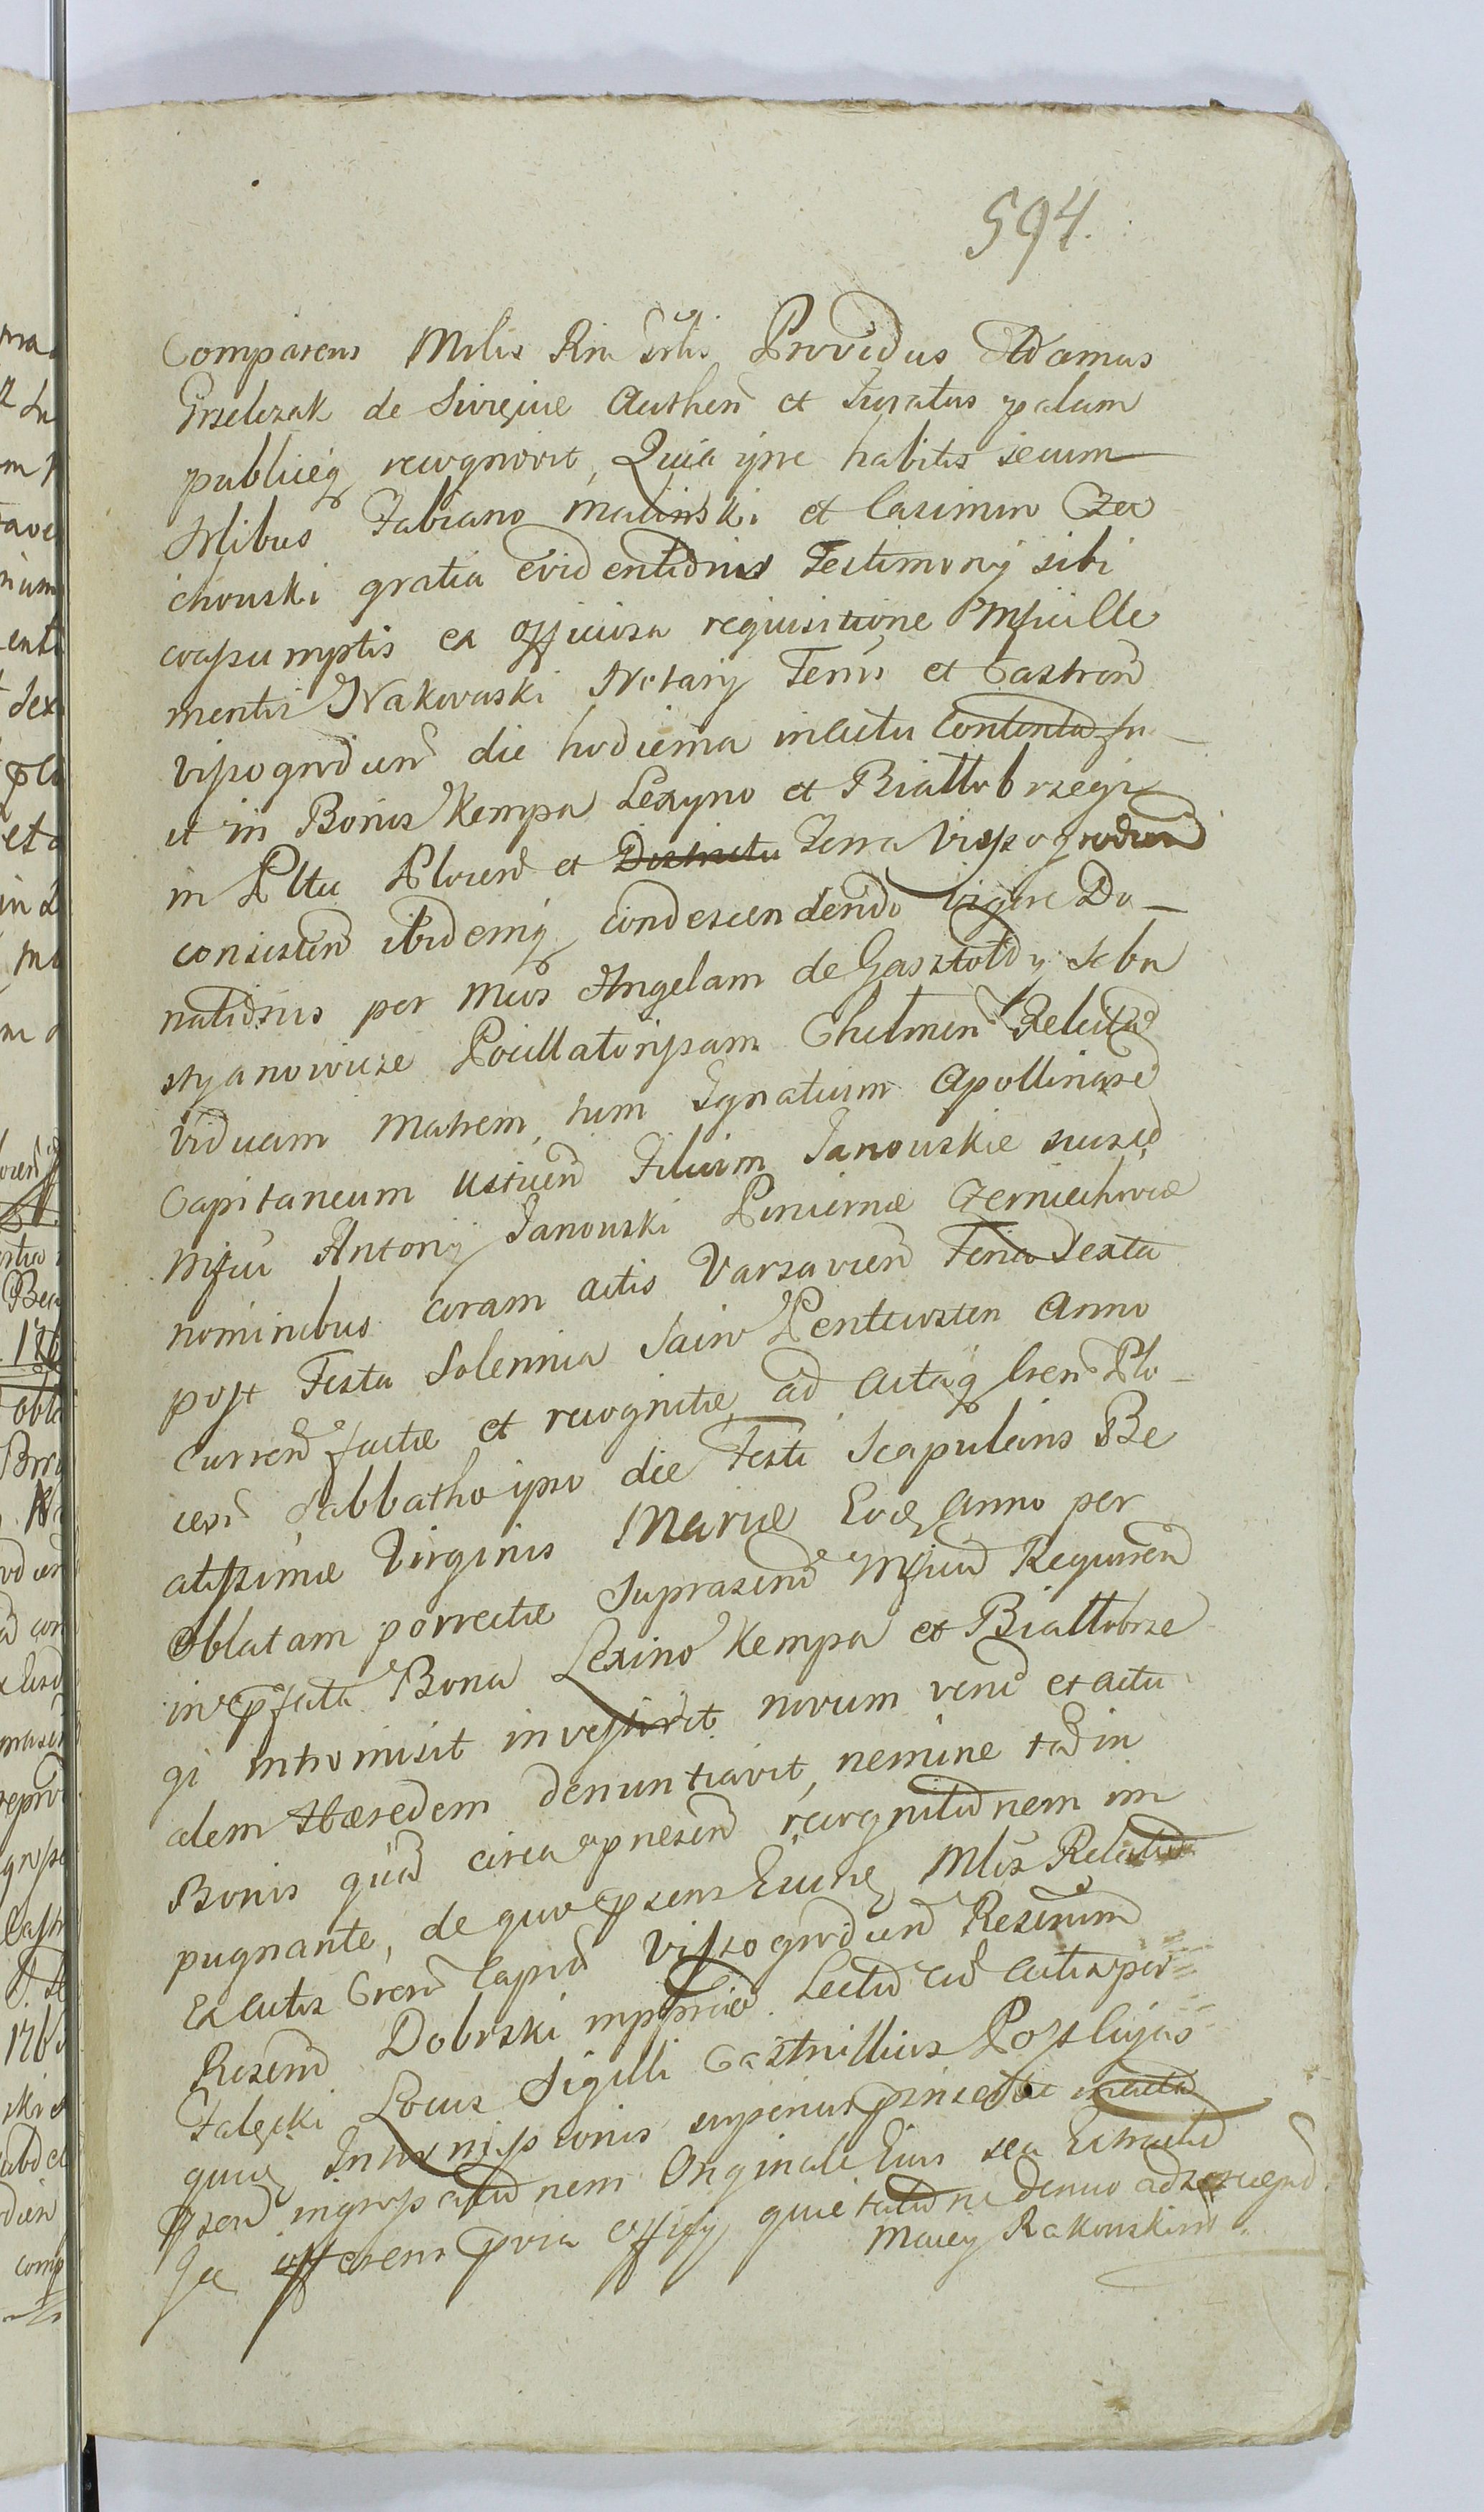 594.
Comparens Mlis Rni Trlis Providus Adamus
Grzelczak de Swięcice Authen et Juratus palam
publiceq recognovit, Quia ipse habitis secum
Nlibus Fabiano Malinski et Casimiro Cze
chouski gratia evidentioris Testimonij sibi
coassumptis ex officiosa requisitione Mfici Cle
mentis Nakwaski Notarij Terris et Castren
Vissogrdien die hodierna in actu contenta fu
it in Bonis Kempa Lexyno et Białłobrzegi
in Pltu Plocen et Districtu Terra Vissogrodien
consisten ibidemq condescendendo vigore Do
nationis per Mcos Angelam de Gasztoldy Seba
styanowicze Pocillatorissam Chelmen Relictā
viduam matrem, tum Ignatium Apollinarē
Capitaneum Ustien Filium Janouskie
Mfici Antonij Janouski Pincernæ Czerniechoviæ
nominibus coram actis Varsavien Feria Sexta
post Festa Solennia Sacro Pentecosten Anno
Curren factæ et recognitæ, ad Actaq hæc Plo
cen Sabbatho ipso die Festi Scapularis Be
atissimæ Virginis Mariæ Eoq Anno per
Oblatam porrectæ Suprascrip Mficū Requiren
in pfata Bona Lexino Kempa et Białłobrze
gi intromisit investivit novum verū et actu
alem Hæredem denuntiavit, nemine tad in
Bonis quā circa presen recognitionem im
pugnante, de quo psens Eiusq Mlis Relatio
Ex actis Cren Capit Vissogrdien Rescrium
Rescrip Dobrski mppria. Lectū cū Actis per
Falęcki Locus Sigilli Castrillius Post cujus
quiq Intromissionis superius insertæ in acta
psen ingrossationem Originale Eius seu Extractū
Ja offerens pria Officij quietatione denuo ad se recepit
Maciey Rakouski mp